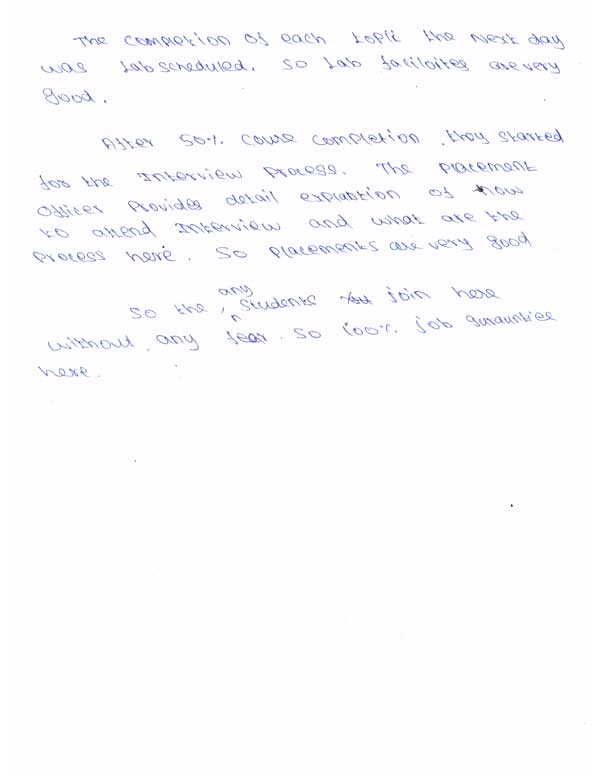 The completion of each topic the next day
was Lab scheduled. So Lab faciloites are very
good.
After 50% couse completion, they started
for the Interview Process. The Placement
Officer Provides detail explantion of how
to attend Interview and what are the
Process here. So Placements are very good
any
So the students join here
without any fear. So 100% job guraunttee
here.